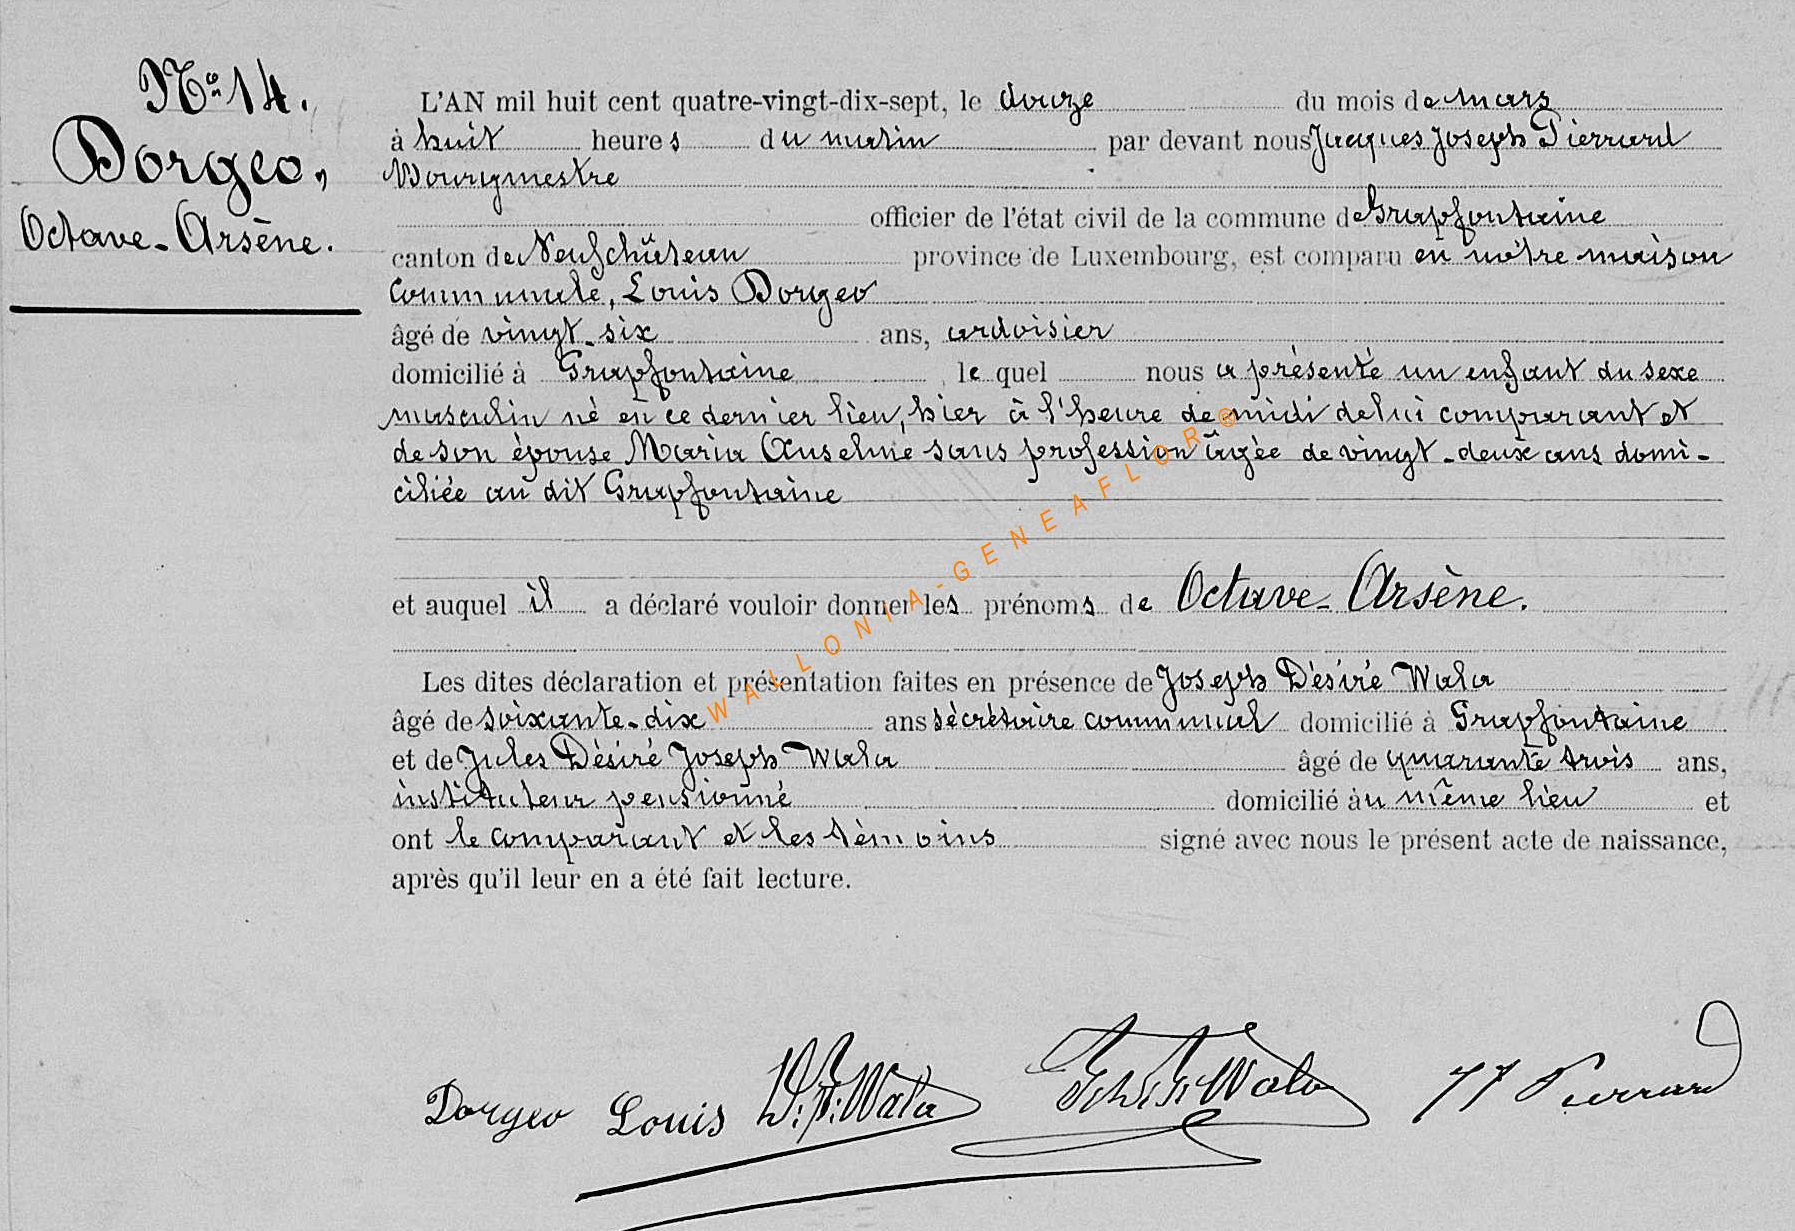 No 14.
Dorgeo,
Octave-Arsène.
L'AN mil huit cent quatre-vingt-dix-sept, le douze du mois de mars
à huit heures du matin par devant nous Jacques Joseph Pierrard
Bourgmestre
officier de l'état civil de la commune de Grapfontaine
canton de Neufchâteau province de Luxembourg, est comparu en nôtre maison
Communale, Louis Dorgeo
âgé de vingt-six ans, ardoisier
domicilié à Grapfontaine, lequel nous a présenté un enfant du sexe
masculin né en ce dernier lieu, hier à l'heure de midi de lui comparant et
de son épouse Maria Anselme sans profession âgée de vingt-deux ans domi-
ciliée au dit Grapfontaine
et auquel il a déclaré vouloir donner les prénoms de Octave-Arsène.
Les dites déclaration et présentation faites en présence de Joseph Désiré Wala
âgé de soixante-dix ans secrétaire communal domicilié à Grapfontaine
et de Jules Désiré Joseph Wala âgé de quarante trois ans,
instituteur pensionné domicilié au même lieu et
ont le comparant et les témoins signé avec nous le présent acte de naissance,
après qu'il leur en a été fait lecture.
Dorgeo Louis Wala Wala JJ Pierrard
WALLONIA-GENEAFLOR®